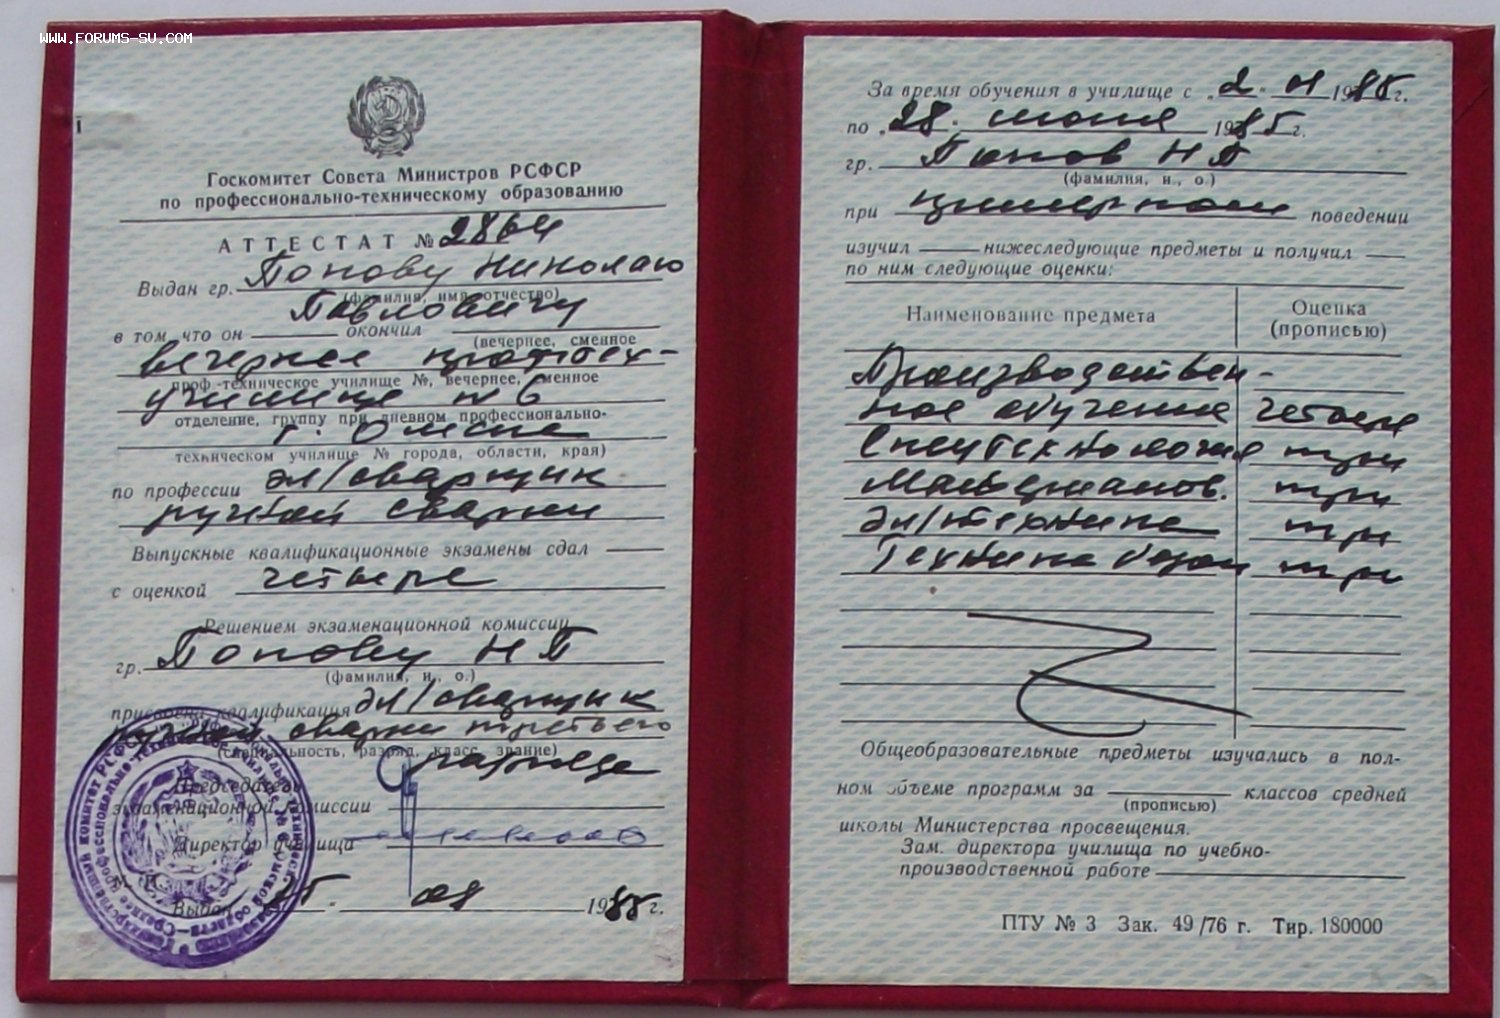 WWW.FORUMS-SU.COM
Госкомитет Совета Министров РСФСР
по профессионально-техническому образованию
АТТЕСТАТ № 2864
Выдан гр. Попову Николаю
(фамилия, имя, отчество)
Павловичу
в том, что он окончил
(вечернее, сменное
вечернее профтех-
проф-техническое училище №, вечернее, сменное
училище № 6
отделение, группу при дневном профессионально-
г. Омска
техническом училище № города, области, края)
по профессии эл/сварщик
ручной сварки
Выпускные квалификационные экзамены сдал
с оценкой четыре
Решением экзаменационной комиссии
гр. Попову Н П
(фамилия, и., о.)
присвоена квалификация эл/сварщик
ручной сварки третьего
(специальность, разряд, класс, звание)
разряда
Председатель
экзаменационной комиссии
Директор училища
Выдан 1985 г.
За время обучения в училище с „2" 01 1985 г.
по „28" июня 1985 г.
гр. Попов Н П
(фамилия, и., о.)
при примерном поведении
изучил нижеследующие предметы и получил
по ним следующие оценки:
Наименование предмета Оценка (прописью)
Производствен-
ное обучение четыре
Спецтехнология три
Материалов. три
Эл/техника три
Техника безоп три
Общеобразовательные предметы изучались в пол-
ном объеме программ за классов средней
(прописью)
школы Министерства просвещения.
Зам. директора училища по учебно-
производственной работе
ПТУ № 3 Зак. 49/76 г. Тир. 180000